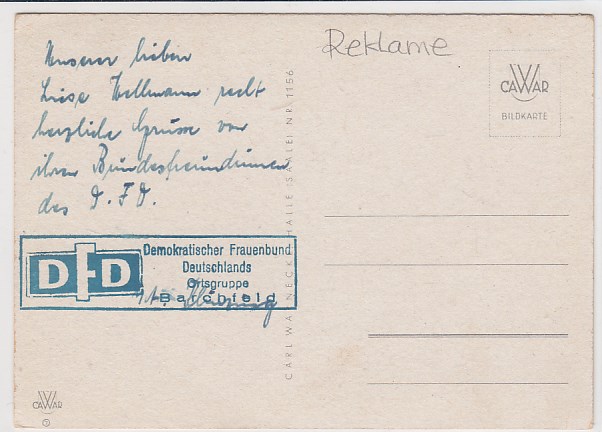 Unserer lieben
Liese Wellmann recht
herzliche Grüsse von
ihren Bundesfreundinnen
des D.F.D.
DFD
Demokratischer Frauenbund
Deutschlands
Ortsgruppe
Barchfeld
Reklame
CAWAR
BILDKARTE
CARL WARNECK HALLE SAALE NR. 1156
CAWAR